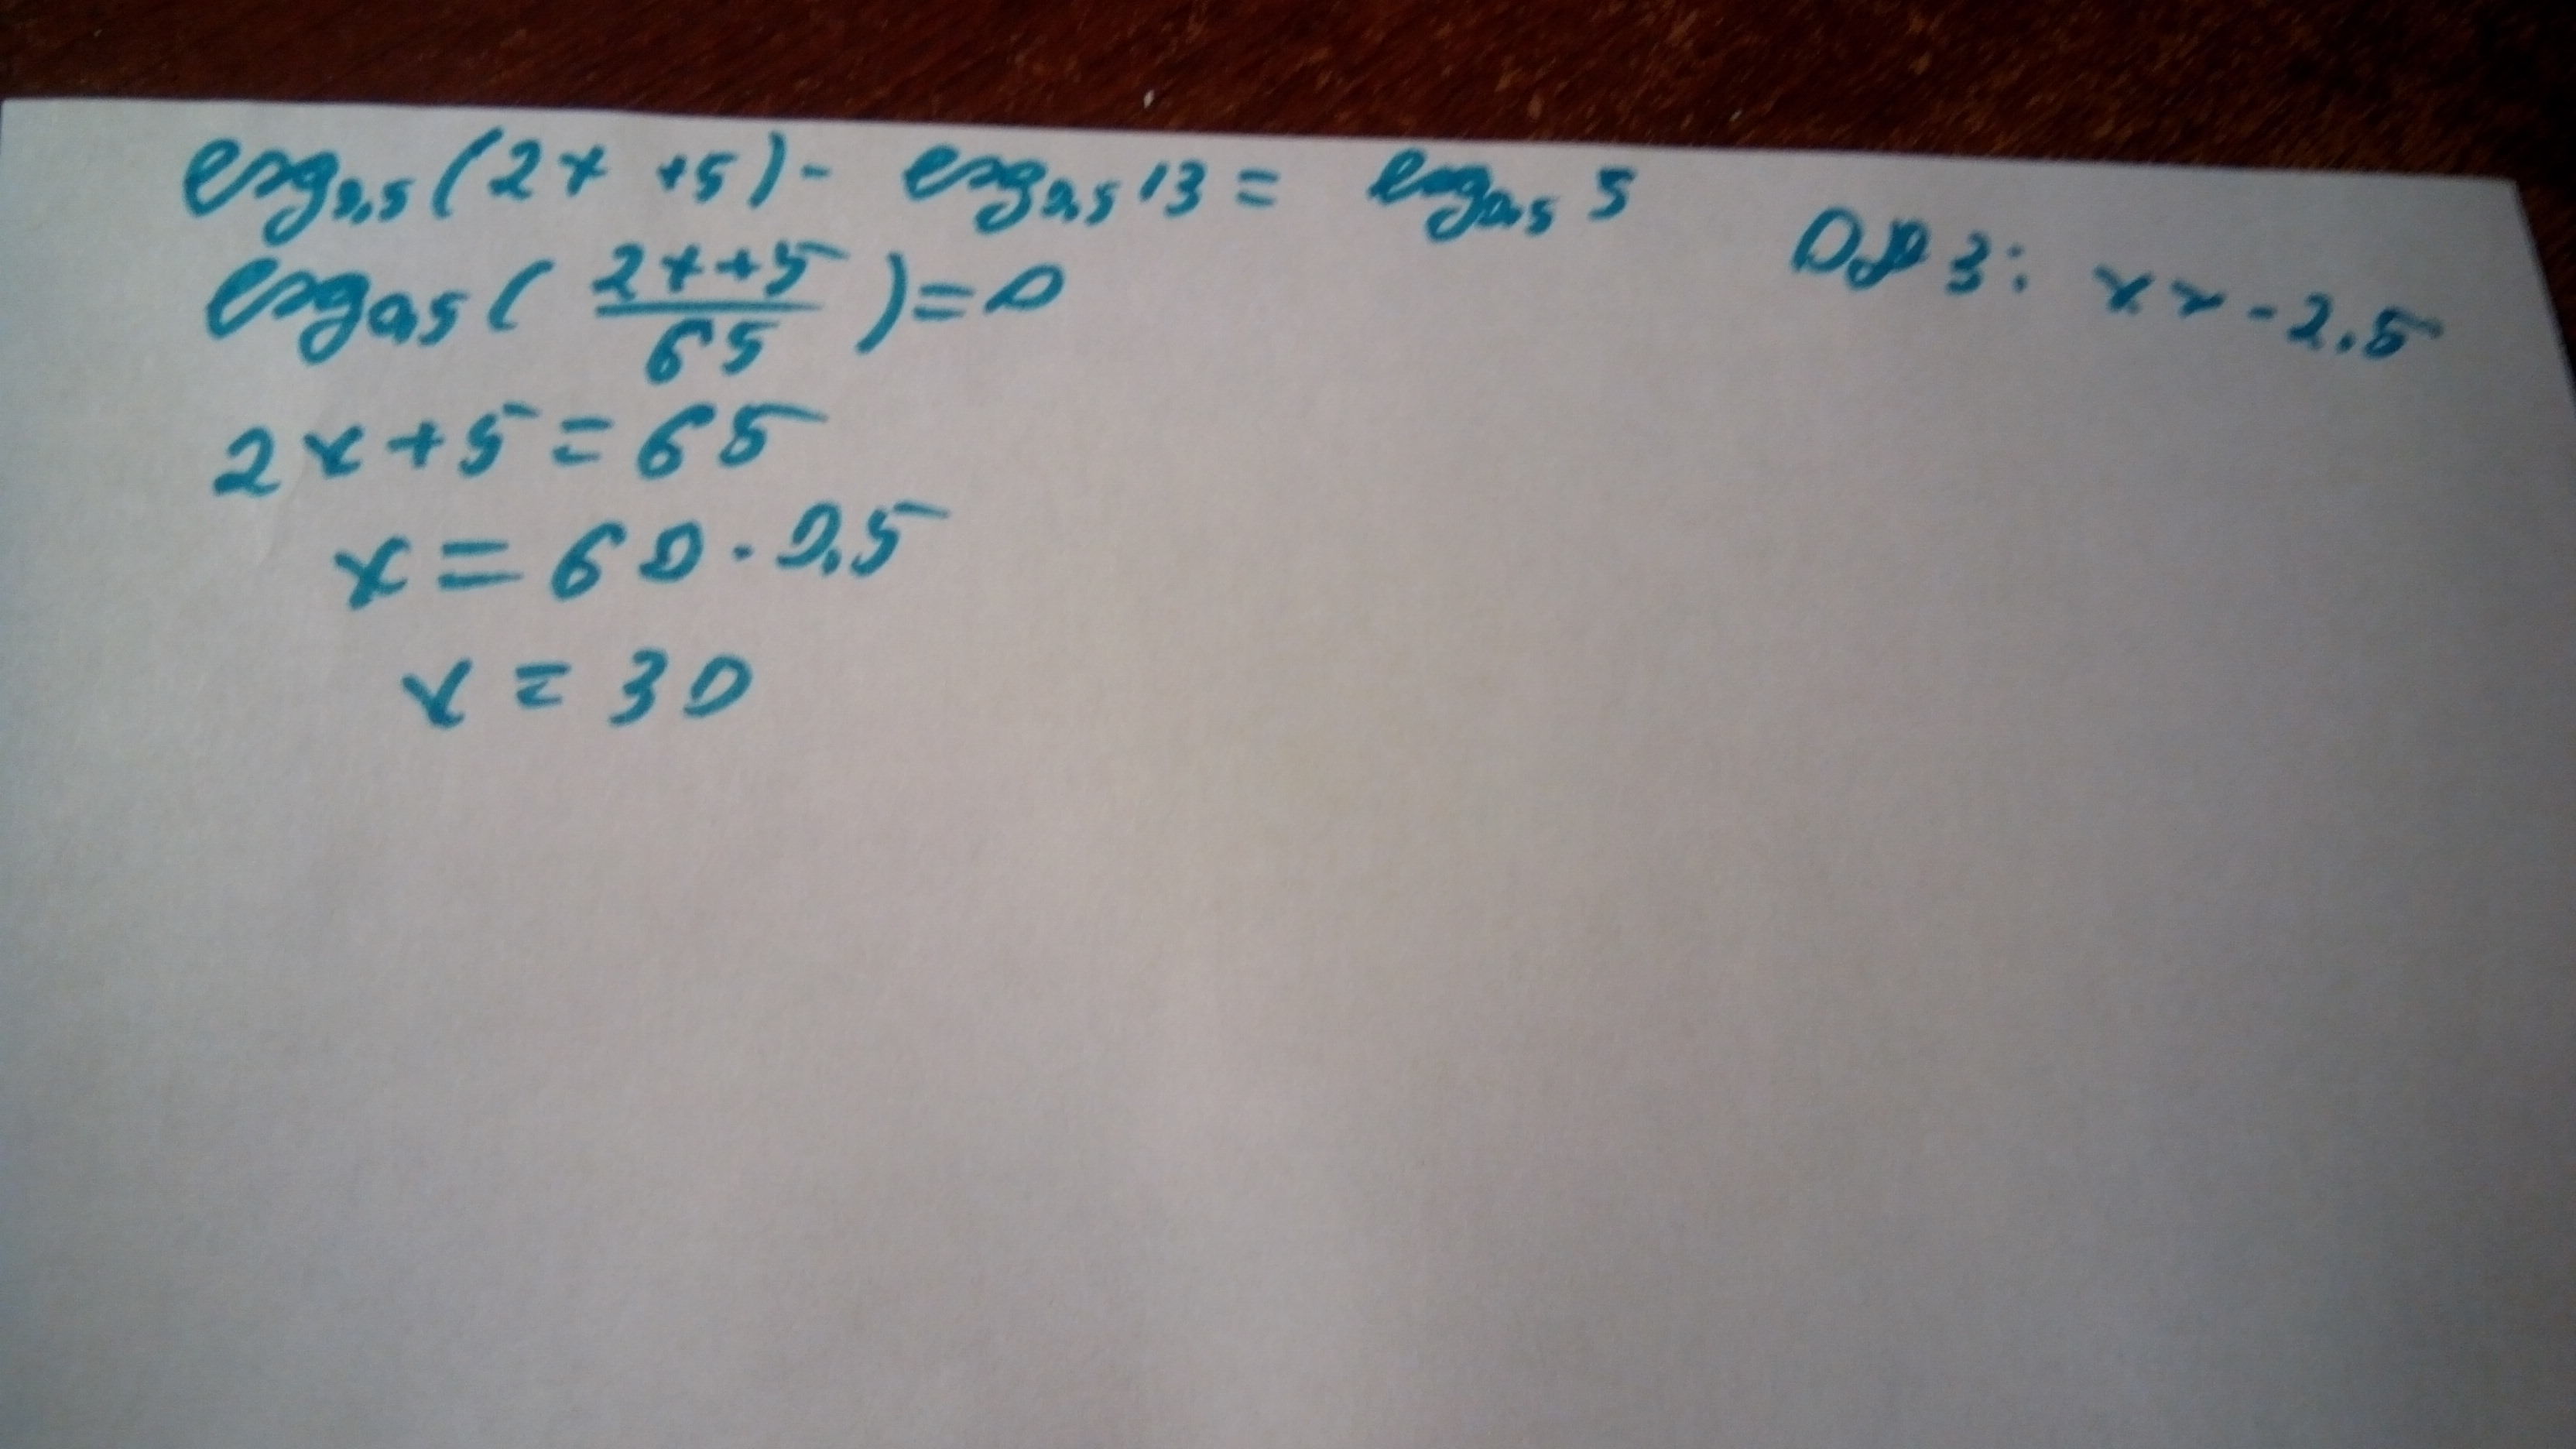 log₀,₅(2x+5)- log₀,₅13= log₀,₅5 ОДЗ: x>-2,5
log₀,₅((2x+5)/65)=0
2x+5=65
x=60·0,5
x=30